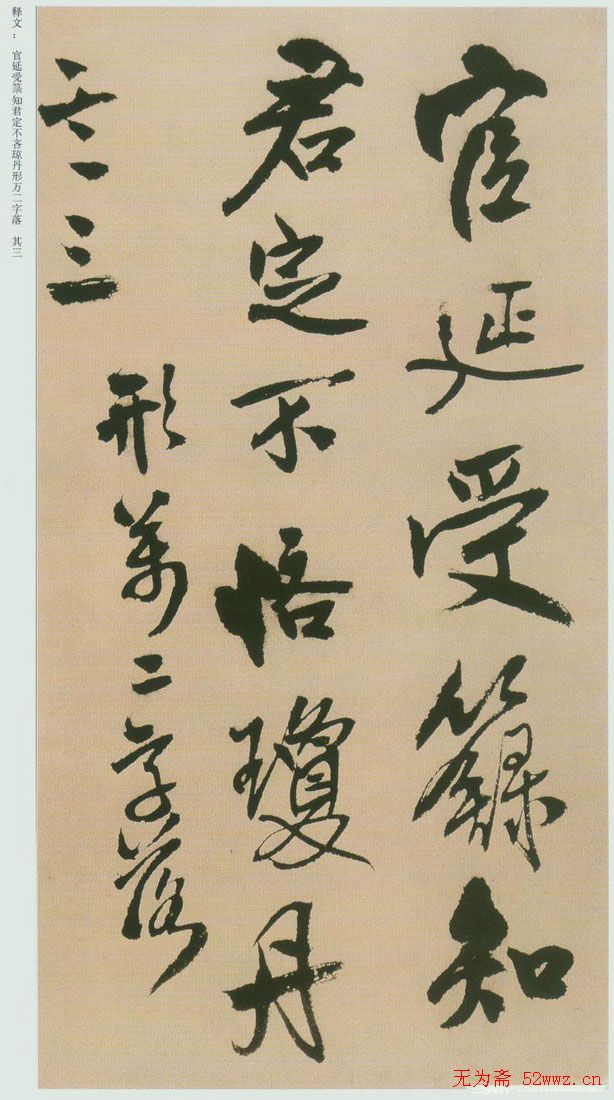 官延受籙知
君定不悋瓊丹
形萬二字落
其三
释文： 官延受箓知君定不吝琼丹形万二字落 其三
无为斋 52wwz.cn